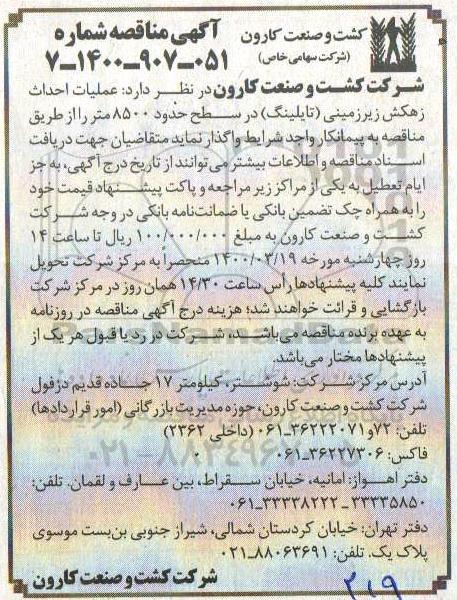 کشت و صنعت کارون
(شرکت سهامی خاص)
آگهی مناقصه شماره
۷-۱۴۰۰-۹۰۷-۰۵۱
شرکت کشت و صنعت کارون در نظر دارد: عملیات احداث
زهکش زیرزمینی (تایلینگ) در سطح حدود ۸۵۰۰ متر را از طریق
مناقصه به پیمانکار واجد شرایط واگذار نماید متقاضیان جهت دریافت
اسناد مناقصه و اطلاعات بیشتر می‌توانند از تاریخ درج آگهی، به جز
ایام تعطیل به یکی از مراکز زیر مراجعه و پاکت پیشنهاد قیمت خود
را به همراه چک تضمین بانکی یا ضمانت‌نامه بانکی در وجه شرکت
کشت و صنعت کارون به مبلغ ۱۰۰/۰۰۰/۰۰۰ ریال تا ساعت ۱۴
روز چهارشنبه مورخه ۱۴۰۰/۰۳/۱۹ منحصراً به مرکز شرکت تحویل
نمایند کلیه پیشنهادها رأس ساعت ۱۴/۳۰ همان روز در مرکز شرکت
بازگشایی و قرائت خواهند شد؛ هزینه درج آگهی مناقصه در روزنامه
به عهده برنده مناقصه می‌باشد، شرکت در رد یا قبول هر یک از
پیشنهادها مختار می‌باشد.
آدرس مرکز شرکت: شوشتر، کیلومتر ۱۷ جاده قدیم دزفول
شرکت کشت و صنعت کارون، حوزه مدیریت بازرگانی (امور قراردادها)
تلفن: ۷۲و۳۶۲۲۲۰۷۱-۰۶۱ (داخلی ۲۳۶۲)
فاکس: ۳۶۲۲۷۳۰۶-۰۶۱
دفتر اهواز: امانیه، خیابان سقراط، بین عارف و لقمان. تلفن:
۳۳۳۳۵۸۵۰-۳۳۳۳۸۲۲۲-۰۶۱
دفتر تهران: خیابان کردستان شمالی، شیراز جنوبی بن‌بست موسوی
پلاک یک. تلفن: ۸۸۰۶۳۶۹۱-۰۲۱
شرکت کشت و صنعت کارون
۳۱۹